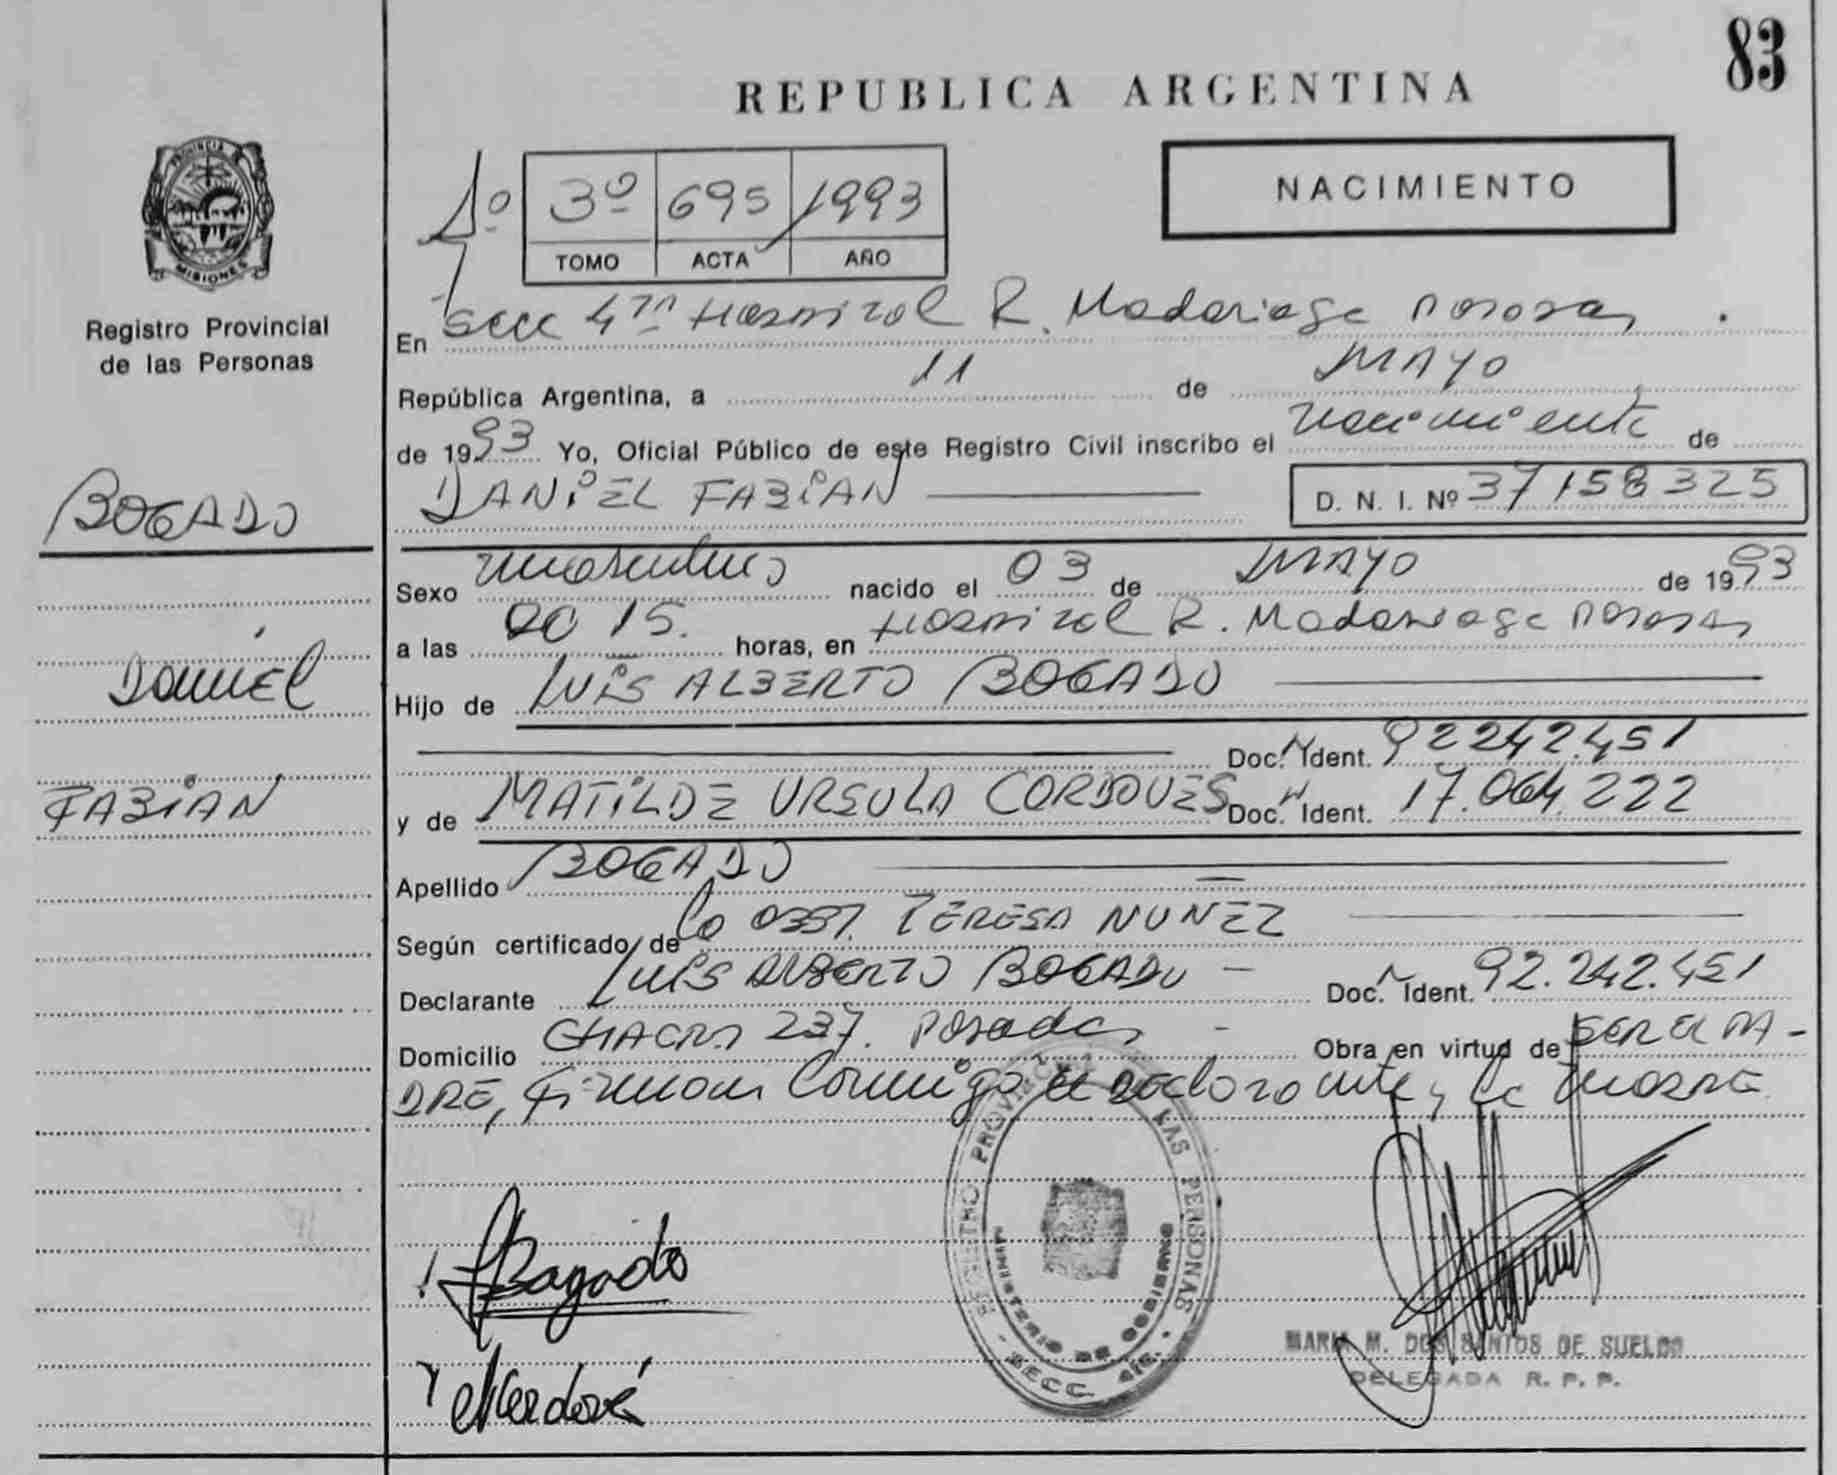 83
REPUBLICA ARGENTINA
PROVINCIA D
MISIONES
Registro Provincial
de las Personas
1º
3º 695 1993
TOMO ACTA AÑO
NACIMIENTO
En Secc 4ta Hospital R. Madariaga Posadas
República Argentina, a 11 de MAYO
de 1993 Yo, Oficial Público de este Registro Civil inscribo el nacimiento de
DANIEL FABIAN D. N. I. Nº 37158325
BOGADO
DANIEL
FABIAN
Sexo masculino nacido el 03 de MAYO de 1993
a las 00 15. horas, en Hospital R. Madariaga Posadas
Hijo de LUIS ALBERTO BOGADO
Doc. Ident. 92242.451
y de MATILDE URSULA CORDOVES Doc. Ident. 17.064.222
Apellido BOGADO
Según certificado de La Obst. TERESA NUNEZ
Declarante LUIS ALBERTO BOGADO - Doc. Ident. 92.242.451
Domicilio CHACRA 237. Posadas - Obra en virtud de SER EL PA-
DRE, Firman Conmigo el declarante y la madre
REGISTRO PROVINCIAL DE LAS PERSONAS
MINISTERIO DE GOBIERNO
SECC. 4ta.
Bogado
MARIA M. DOS SANTOS DE SUELDO
DELEGADA R. P. P.